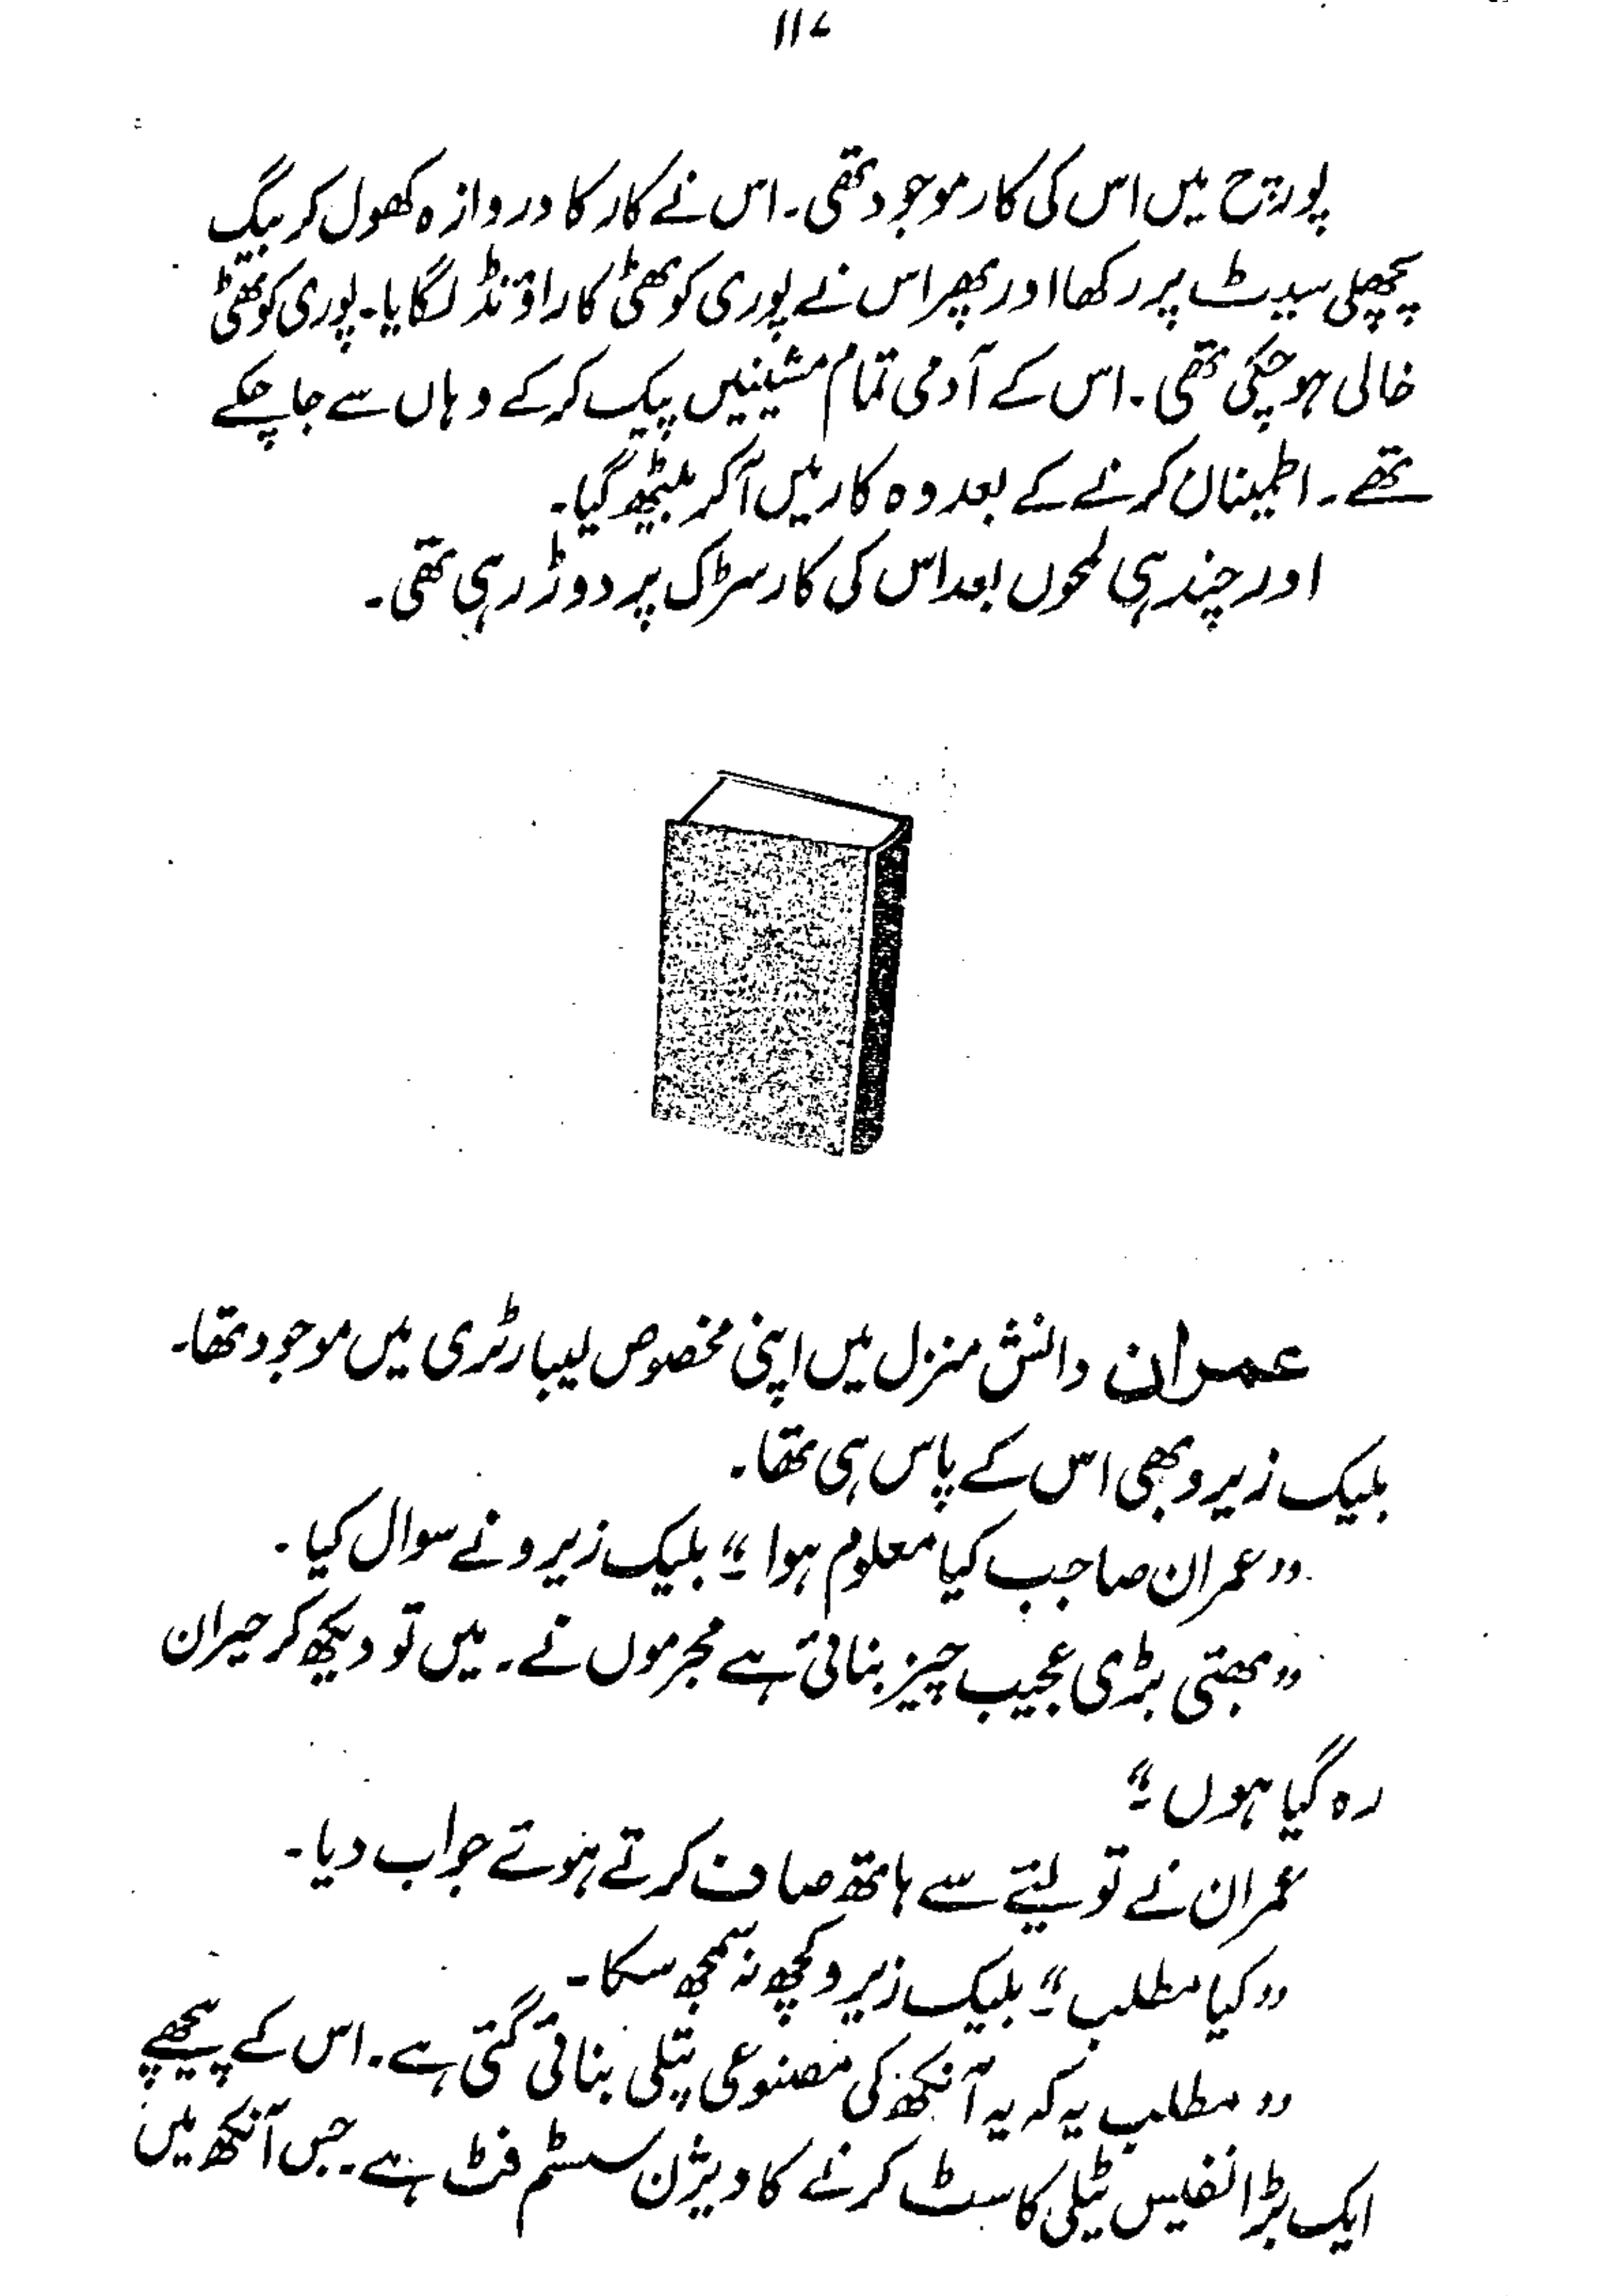 ۱۱۷
پورچ میں اس کی کار موجود تھی۔ اس نے کار کا دروازہ کھول کر بیگ
پچھلی سیٹ پر رکھا اور پھر اس نے پوری کوٹھی کا راؤنڈ لگایا۔ پوری کوٹھی
خالی ہو چکی تھی۔ اس کے آدمی تمام مشینیں پیک کر کے وہاں سے جا چکے
تھے۔ اطمینان کرنے کے بعد وہ کار میں آکر بیٹھ گیا۔
اور چند ہی لمحوں بعد اس کی کار سڑک پر دوڑ رہی تھی۔
عمران دانش منزل میں اپنی مخصوص لیبارٹری میں موجود تھا۔
بلیک زیرو بھی اس کے پاس ہی تھا۔
"عمران صاحب کیا معلوم ہوا۔" بلیک زیرو نے سوال کیا۔
"بھئی بڑی عجیب چیز بنائی ہے مجرموں نے۔ میں تو دیکھ کر حیران
رہ گیا ہوں۔"
عمران نے تولیئے سے ہاتھ صاف کرتے ہوئے جواب دیا۔
"کیا مطلب۔" بلیک زیرو کچھ نہ سمجھ سکا۔
"مطلب یہ کہ یہ آنکھ کی مصنوعی پتلی بنائی گئی ہے۔ اس کے پیچھے
ایک بڑا نفیس ٹیلی کاسٹ کرنے کا ویژن سسٹم فٹ ہے۔ جس آنکھ میں